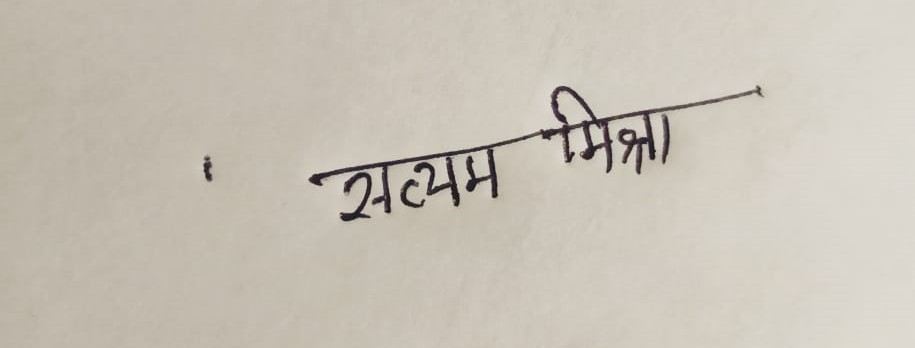 सत्यम मिश्रा